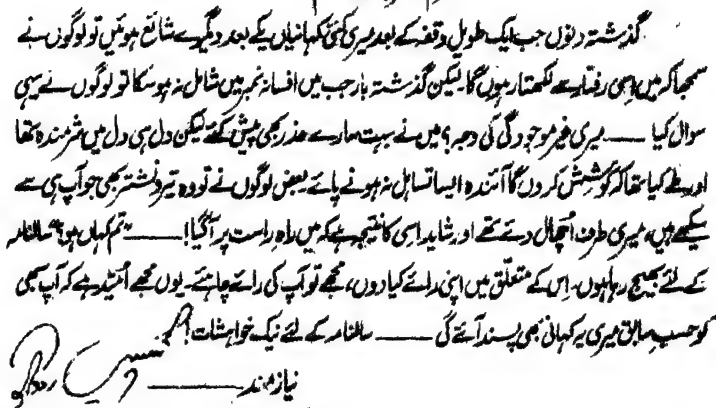 گذشتہ دنوں جب ایک طویل وقفہ کے بعد میری کئی کہانیاں یکے بعد دیگرے شائع ہوئیں تو لوگوں نے
سمجھا کہ میں اسی رفتار سے لکھتا رہوں گا۔ لیکن گذشتہ بار جب میں افسانہ نمبر میں شامل نہ ہو سکا تو لوگوں نے یہی
سوال کیا ــــ میری غیر موجودگی کی وجہ؟ میں نے بہت سارے عذر بھی پیش کئے لیکن دل ہی دل میں شرمندہ تھا
اور طے کیا تھا کہ کوشش کروں گا آئندہ ایسا تساہل نہ ہونے پائے بعض لوگوں نے تو وہ تیر و نشتر بھی جو آپ ہی سے
سیکھے ہیں، میری طرف اُچھال دئے تھے اور شاید اسی کا نتیجہ ہے کہ میں راہِ راست پر آگیا! ــــ "تم کہاں ہو؟" سالنامہ
کے لئے بھیج رہا ہوں۔ اِس کے متعلق میں اپنی رائے کیا دوں، مجھے تو آپ کی رائے چاہئے۔ یوں مجھے اُمید ہے کہ آپ سبھی
کو حسبِ سابق میری یہ کہانی بھی پسند آئے گی ــــ سالنامہ کے لئے نیک خواہشات!
نیاز مند ــــ